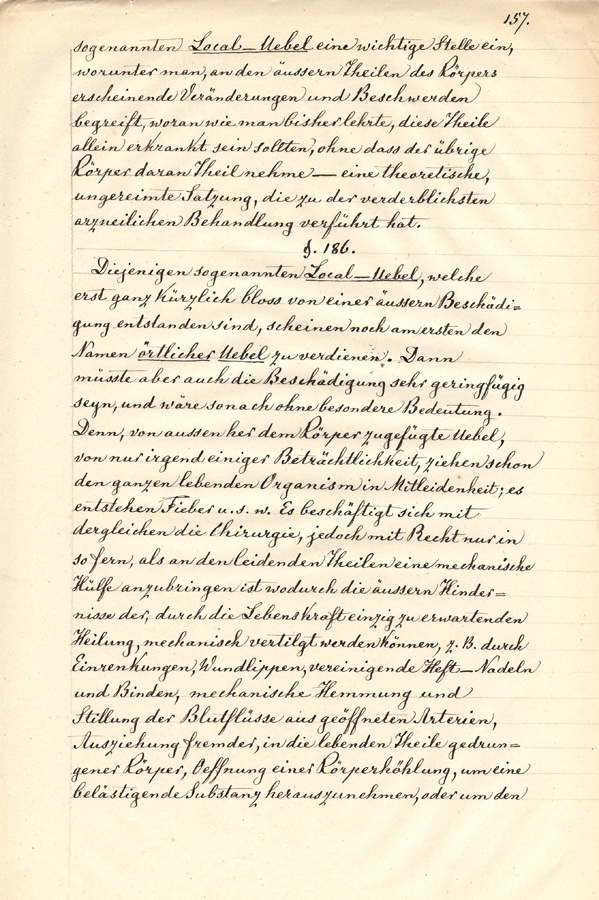 157.
sogenannten Local-Uebel eine wichtige Stelle ein,
worunter man, an den äussern Theilen des Körpers
erscheinende Veränderungen und Beschwerden
begreift, woran wie man bisher lehrte, diese Theile
allein erkrankt sein sollten, ohne dass der übrige
Körper daran Theil nehme — eine theoretische,
ungereimte Satzung, die zu der verderblichsten
arzneilichen Behandlung verführt hat.
§. 186.
Diejenigen sogenannten Local-Uebel, welche
erst ganz kürzlich bloss von einer äussern Beschädi=
gung entstanden sind, scheinen noch am ersten den
Namen örtlicher Uebel zu verdienen. Dann
müsste aber auch die Beschädigung sehr geringfügig
seyn, und wäre sonach ohne besondere Bedeutung.
Denn, von aussen her dem Körper zugefügte Uebel,
von nur irgend einiger Beträchtlichkeit, ziehen schon
den ganzen lebenden Organism in Mitleidenheit; es
entstehen Fieber u. s. w. Es beschäftigt sich mit
dergleichen die Chirurgie, jedoch mit Recht nur in
so fern, als an den leidenden Theilen eine mechanische
Hülfe anzubringen ist wodurch die äussern Hinder=
nisse der, durch die Lebenskraft einzig zu erwartenden
Heilung, mechanisch vertilgt werden können, z. B. durch
Einrenkungen, Wundlippen, vereinigende Heft-Nadeln
und Binden, mechanische Hemmung und
Stillung der Blutflüsse aus geöffneten Arterien,
Ausziehung fremder, in die lebenden Theile gedrun=
gener Körper, Oeffnung einer Körperhöhlung, um eine
belästigende Substanz herauszunehmen, oder um den